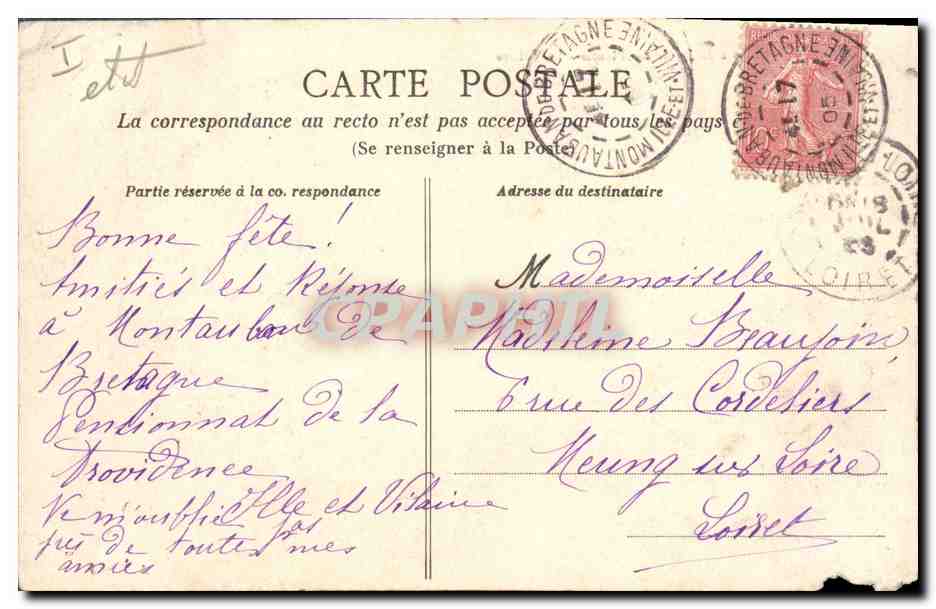 I
CARTE POSTALE
La correspondance au recto n'est pas acceptée par tous les pays
(Se renseigner à la Poste)
Partie réservée à la co. respondance
Adresse du destinataire
MONTAUBAN-DE-BRETAGNE ILLE-ET-VILAINE
MONTAUBAN-DE-BRETAGNE ILLE-ET-VILAINE
17
05
LOIRE
Bonne fête !
Amitiés et Réponse
à Montauban de
Bretagne
Pensionnat de la
Providence
Ille et Vilaine
N'e m'oublie pas
de toutes mes
amies
Mademoiselle
Madeleine Beaujoin
6 rue des Cordeliers
Meung sur Loire
Loiret
CPAPHIL